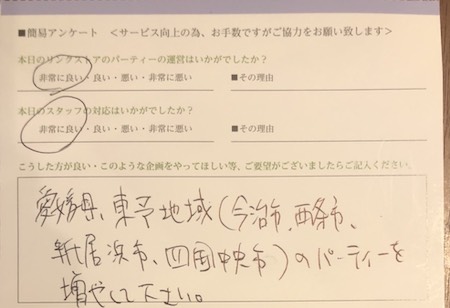 ■簡易アンケート　<サービス向上の為、お手数ですがご協力をお願い致します>
本日のリンクストアのパーティーの運営はいかがでしたか？
非常に良い・良い・悪い・非常に悪い　■その理由
本日のスタッフの対応はいかがでしたか？
非常に良い・良い・悪い・非常に悪い　■その理由
こうした方が良い・このような企画をやってほしい等、ご要望がございましたらご記入ください。
愛媛県、東予地域(今治市、西条市、
新居浜市、四国中央市)のパーティーを
増やして下さい。